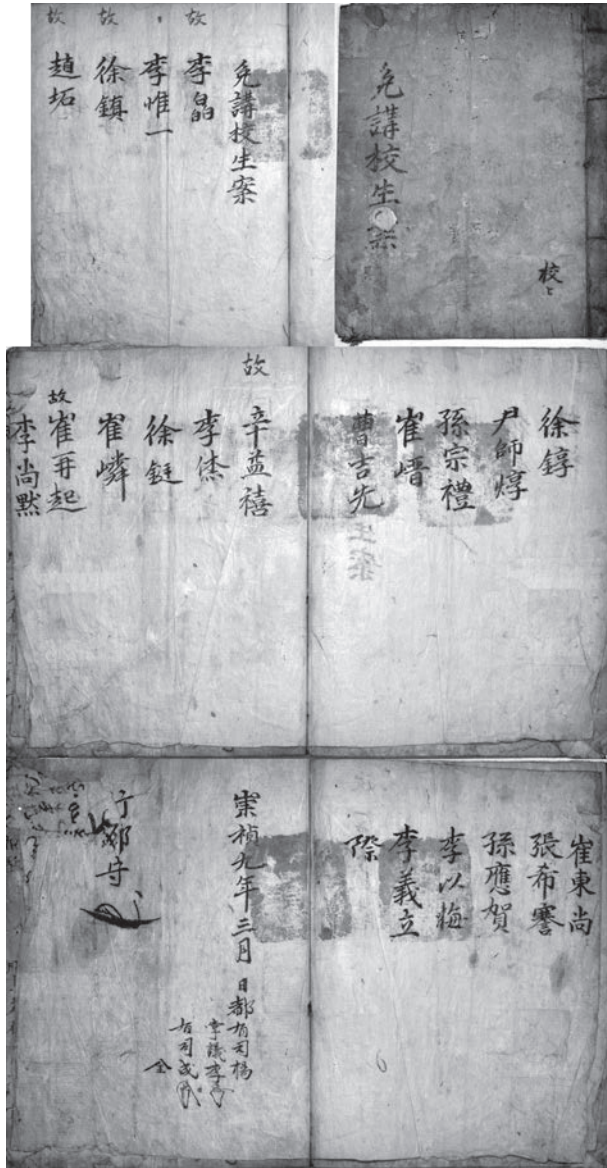 免講校生案
校上
免講校生案
故 李晶
李惟一
故 徐鎭
故 趙坧
徐錞
尹師焞
孫宗禮
崔嶍
曺吉先
故 辛益禧
李
徐鋌
崔嶙
故 崔再起
李尚黙
崔東尚
張希騫
孫應賀
李以梅
李義立
際
崇禎九年三月 日都有司楊
掌議李
有司成
行郡守